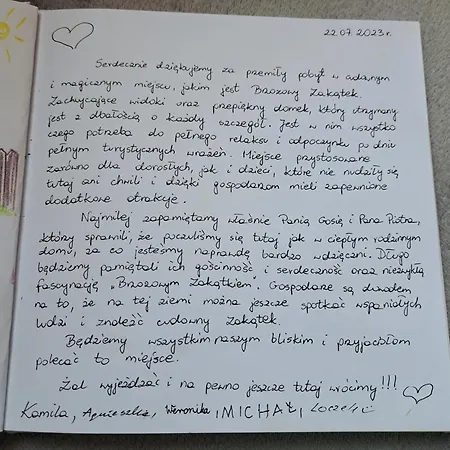 22.07.2023r.
Serdecznie dziękujemy za przemiły pobyt w cudownym
i magicznym miejscu, jakim jest Brzozowy Zakątek.
Zachwycające widoki oraz przepiękny domek, który utrzymany
jest z dbałością o każdy szczegół. Jest w nim wszystko
czego potrzeba do pełnego relaksu i odpoczynku po dniu
pełnym turystycznych wrażeń. Miejsce przystosowane
zarówno dla dorosłych, jak i dzieci, które nie nudziły się
tutaj ani chwili i dzięki gospodarzom mieli zapewnione
dodatkowe atrakcje.
Najmilej zapamiętamy właśnie Panią Gosię i Pana Piotra,
który sprawili, że poczuliśmy się tutaj jak w ciepłym rodzinnym
domu, za co jesteśmy naprawdę bardzo wdzięczni. Długo
będziemy pamiętali ich gościnność i serdeczność oraz niezwykłą
fascynację „Brzozowym Zakątkiem". Gospodarze są dowodem
na to, że na tej ziemi można jeszcze spotkać wspaniałych
ludzi i znaleźć cudowny zakątek.
Będziemy wszystkim naszym bliskim i przyjaciołom
polecać to miejsce.
Żal wyjeżdżać i na pewno jeszcze tutaj wrócimy!!!
Kamila, Agnieszka, Weronika, MICHAŁ,